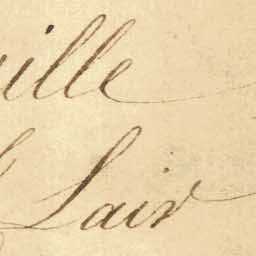 ille
Lair